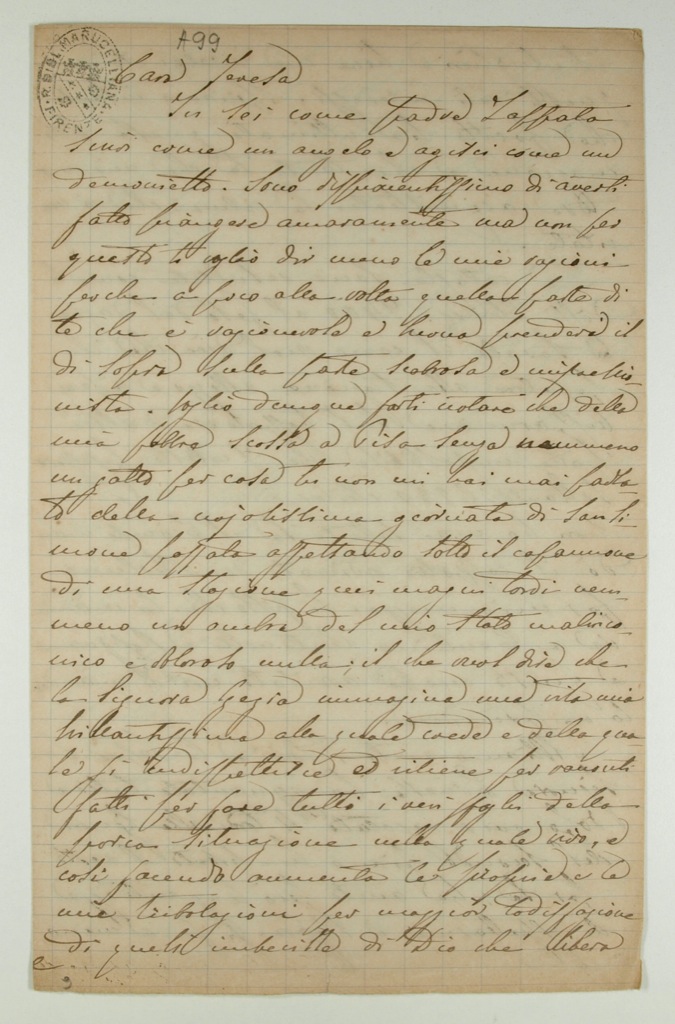 A99
R. BIBL. MARUCELLIANA FIRENZE
Cara Teresa
Tu sei come padre Zappata
senti come un angelo e agisci come un
demonietto. Sono dispiacentissimo di averti
fatto piangere amaramente ma non per
questo ti voglio dir meno le mie ragioni
perche a poco alla volta quella parte di
te che è ragionevole e buona prenderà il
di sopra sulla parte scabrosa e impressio-
nista. Voglio dunque farti notare che della
mia scossa a Pisa senza nemmeno
un gatto per casa tu non mi hai mai parla-
to della nojosissima giornata di San Si-
mone passata aspettando sotto il capannone
di una stagione quei magni tordi nem-
meno un ombra del mio stato malinco-
nico e doloroso nulla; il che vuol dire che
la Signora Gegia immagina una vita mia
brillantissima alla quale crede e della qua-
le si indispettisce ed ritiene per
fatti per fare tutti i miei sfoghi della
porca situazione nella quale vivo, e
così facendo aumenta le proprie e le
mie tribolazioni per maggior sodisfazione
di quell' imbecille di Dio che libera